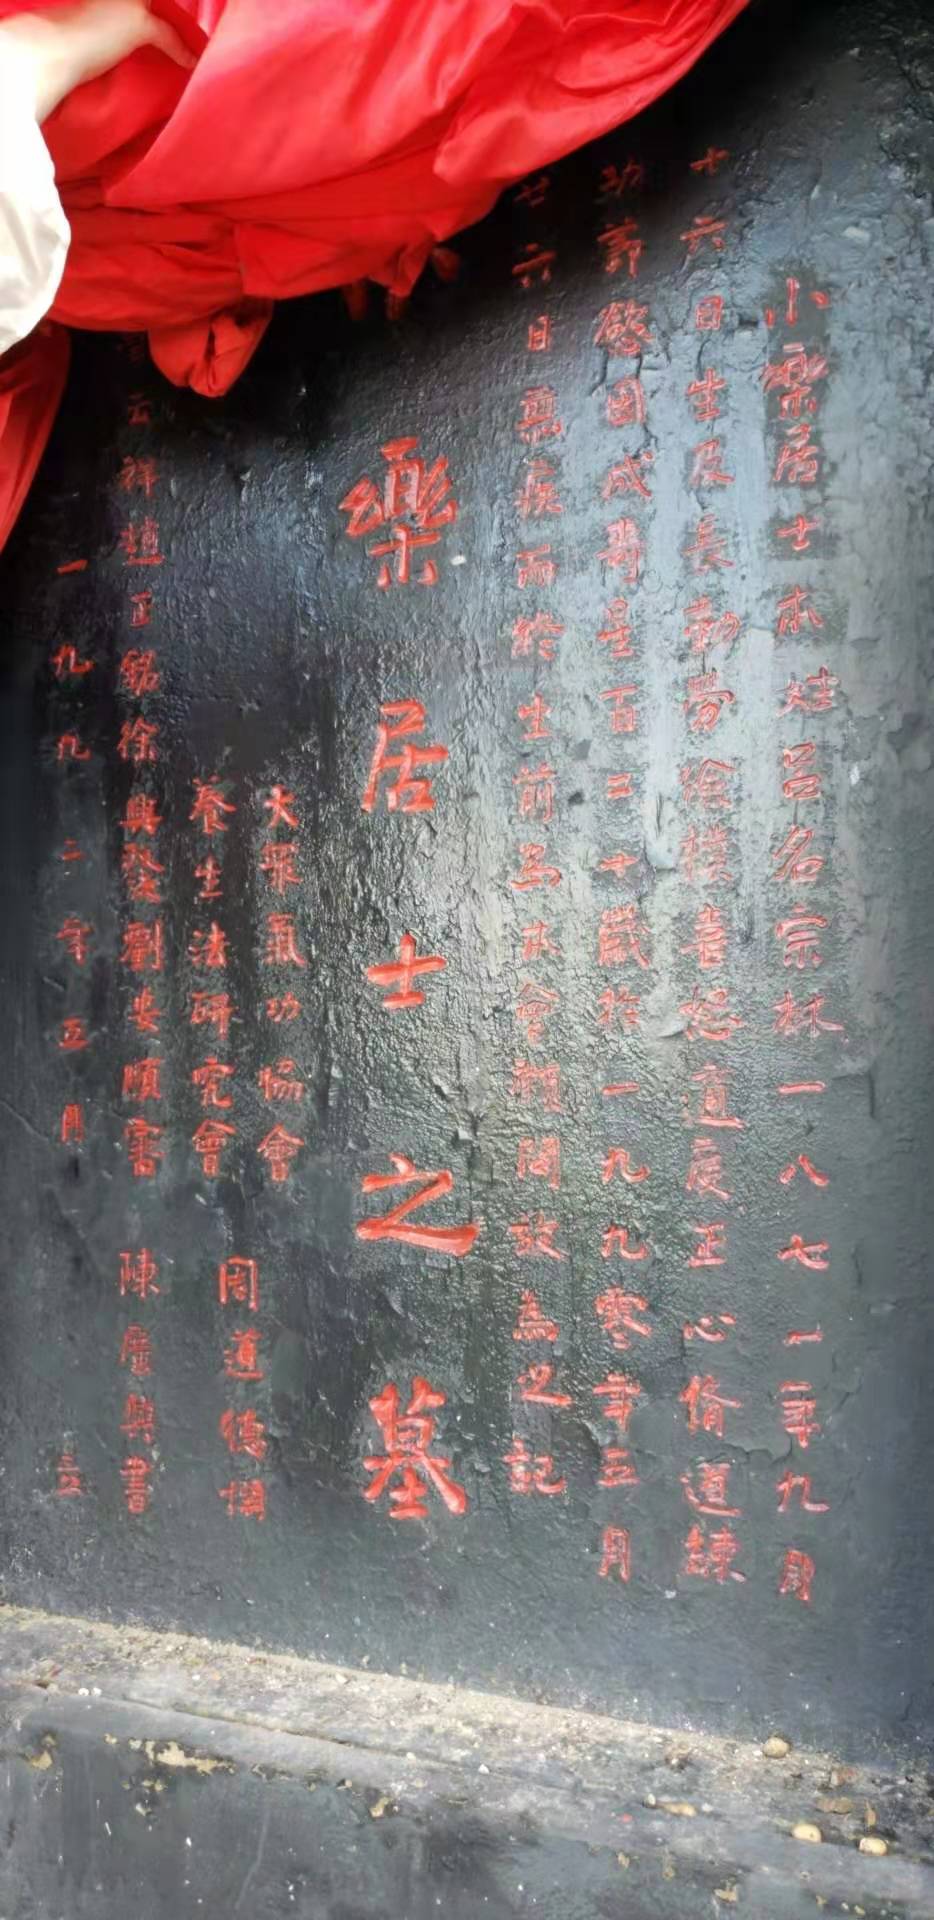 小樂居士本姓呂名宗林一八七一年九月
十六日生及長勤勞儉樸喜怒適度正心脩道練
功節慾因成壽星百二十歲於一九九零年三月
廿六日無疾而終生前為本會顧問故為之記
樂居士之墓
大眾氣功協會
養生法研究會
周道德撰
云祥趙正銘徐興發劉安順審 陳廣興書
一九九二年五月 立